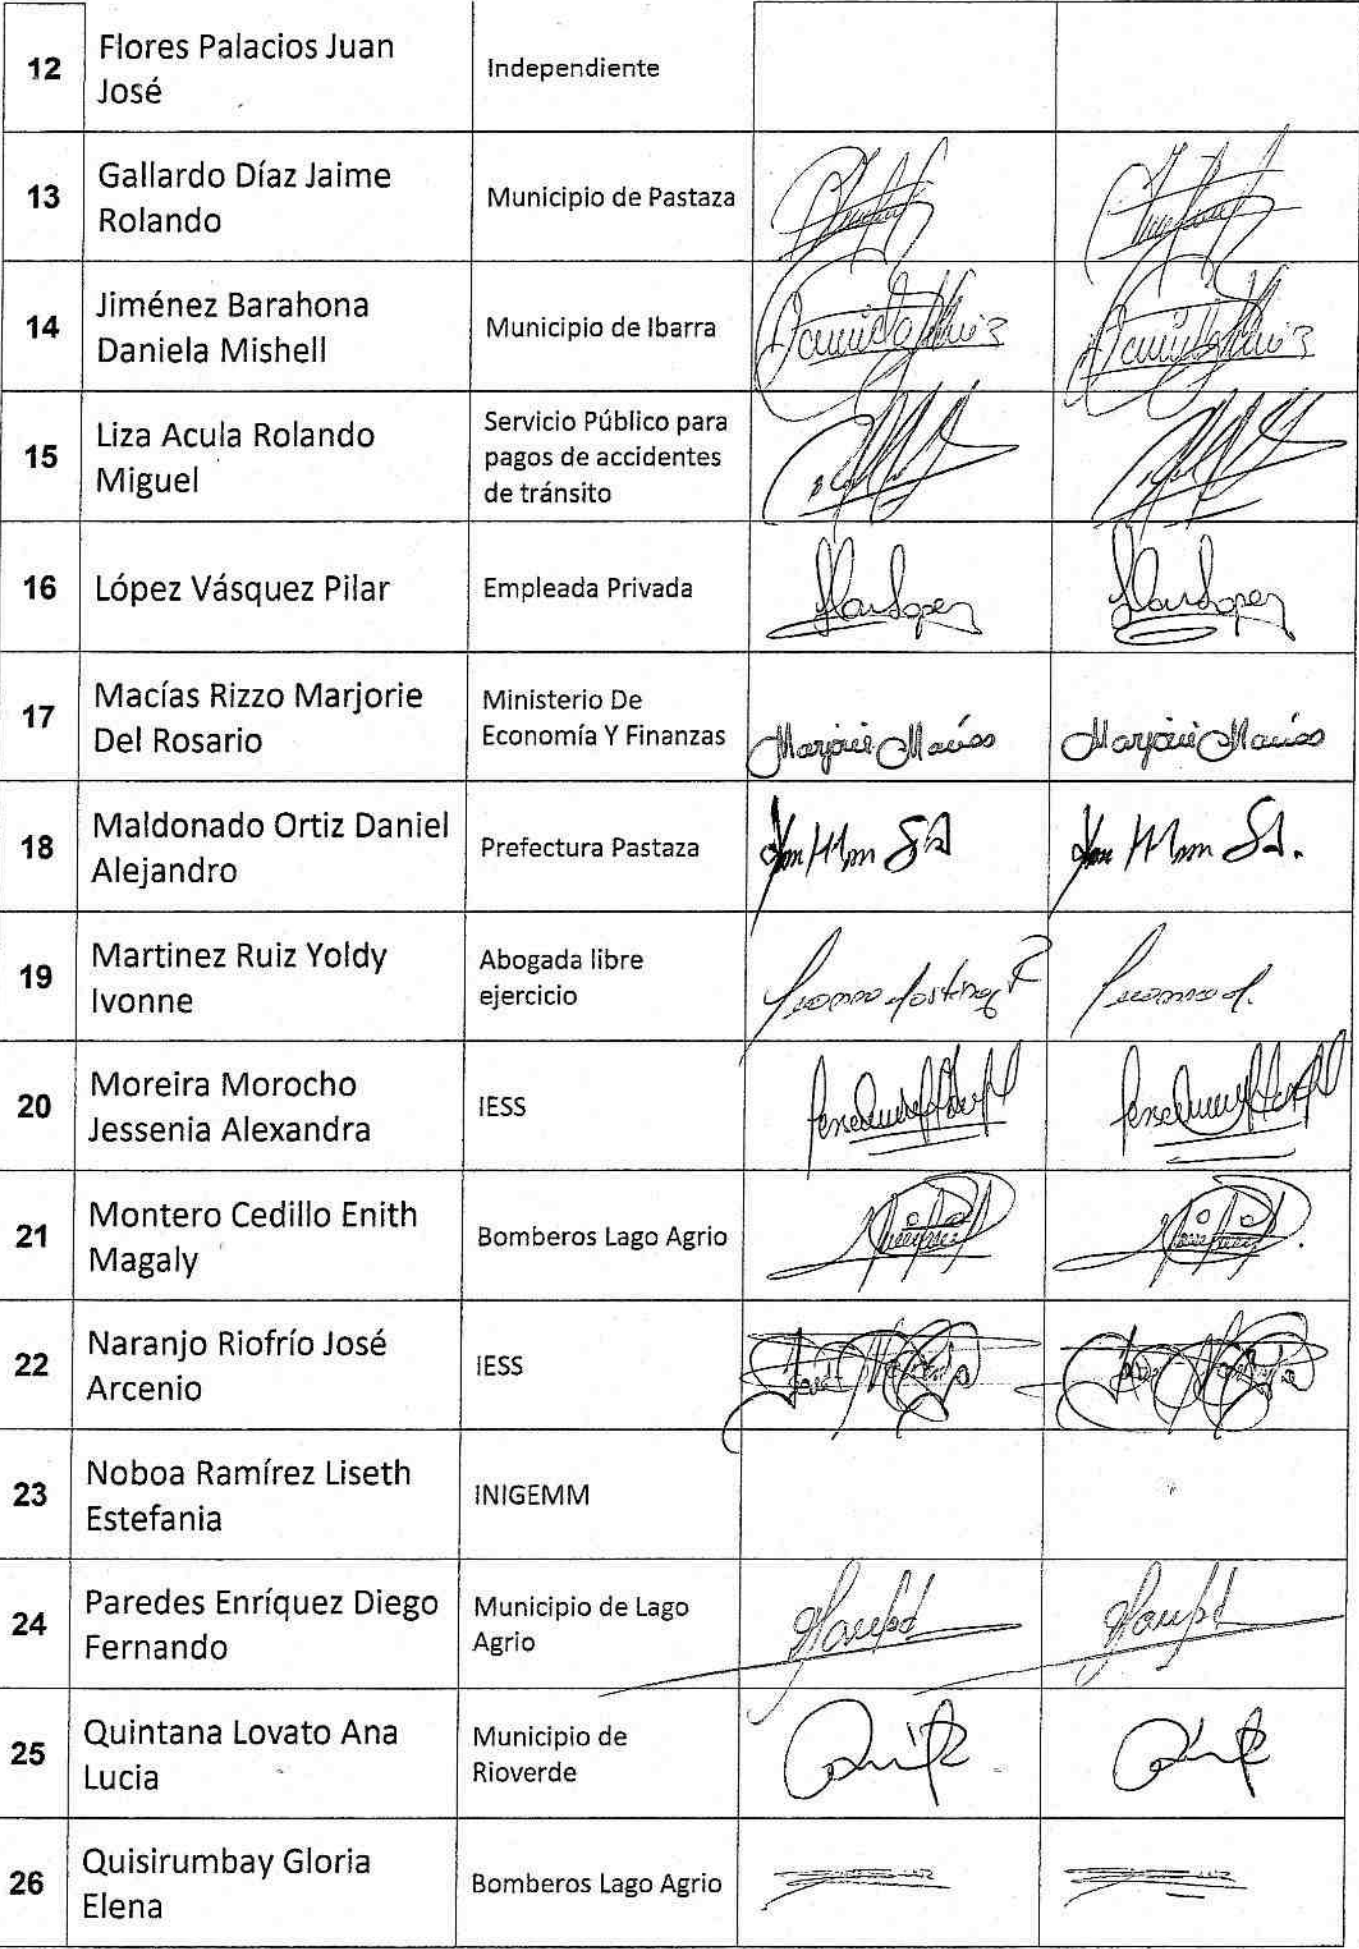 12
Flores Palacios Juan
José
Independiente
13
Gallardo Díaz Jaime
Rolando
Municipio de Pastaza
14
Jiménez Barahona
Daniela Mishell
Municipio de Ibarra
15
Liza Acula Rolando
Miguel
Servicio Público para
pagos de accidentes
de tránsito
16
López Vásquez Pilar
Empleada Privada
17
Macías Rizzo Marjorie
Del Rosario
Ministerio De
Economía Y Finanzas
Marjorie Macías
Marjorie Macías
18
Maldonado Ortiz Daniel
Alejandro
Prefectura Pastaza
19
Martinez Ruiz Yoldy
Ivonne
Abogada libre
ejercicio
20
Moreira Morocho
Jessenia Alexandra
IESS
21
Montero Cedillo Enith
Magaly
Bomberos Lago Agrio
22
Naranjo Riofrío José
Arcenio
IESS
23
Noboa Ramírez Liseth
Estefania
INIGEMM
24
Paredes Enríquez Diego
Fernando
Municipio de Lago
Agrio
25
Quintana Lovato Ana
Lucia
Municipio de
Rioverde
26
Quisirumbay Gloria
Elena
Bomberos Lago Agrio